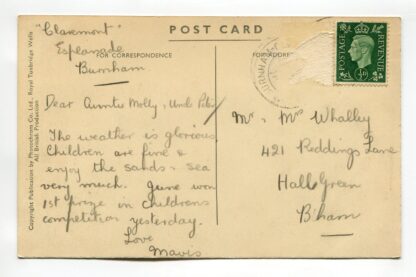 "Claremont"
Esplanade
Burnham
POST CARD
FOR CORRESPONDENCE
FOR ADDRESS
Dear Auntie Molly, Uncle
The weather is glorious
Children are fine &
enjoy the sands & sea
very much. June won
1st prize in childrens
competition yesterday.
Love
Mavis
Mr & Mrs Whalley
421 Reddings Lane
Hall Green
B'ham
BURNHAM
POSTAGE
REVENUE
½D
Copyright Publication by Photochrom Co. Ltd., Royal Tunbridge Wells
All British Production